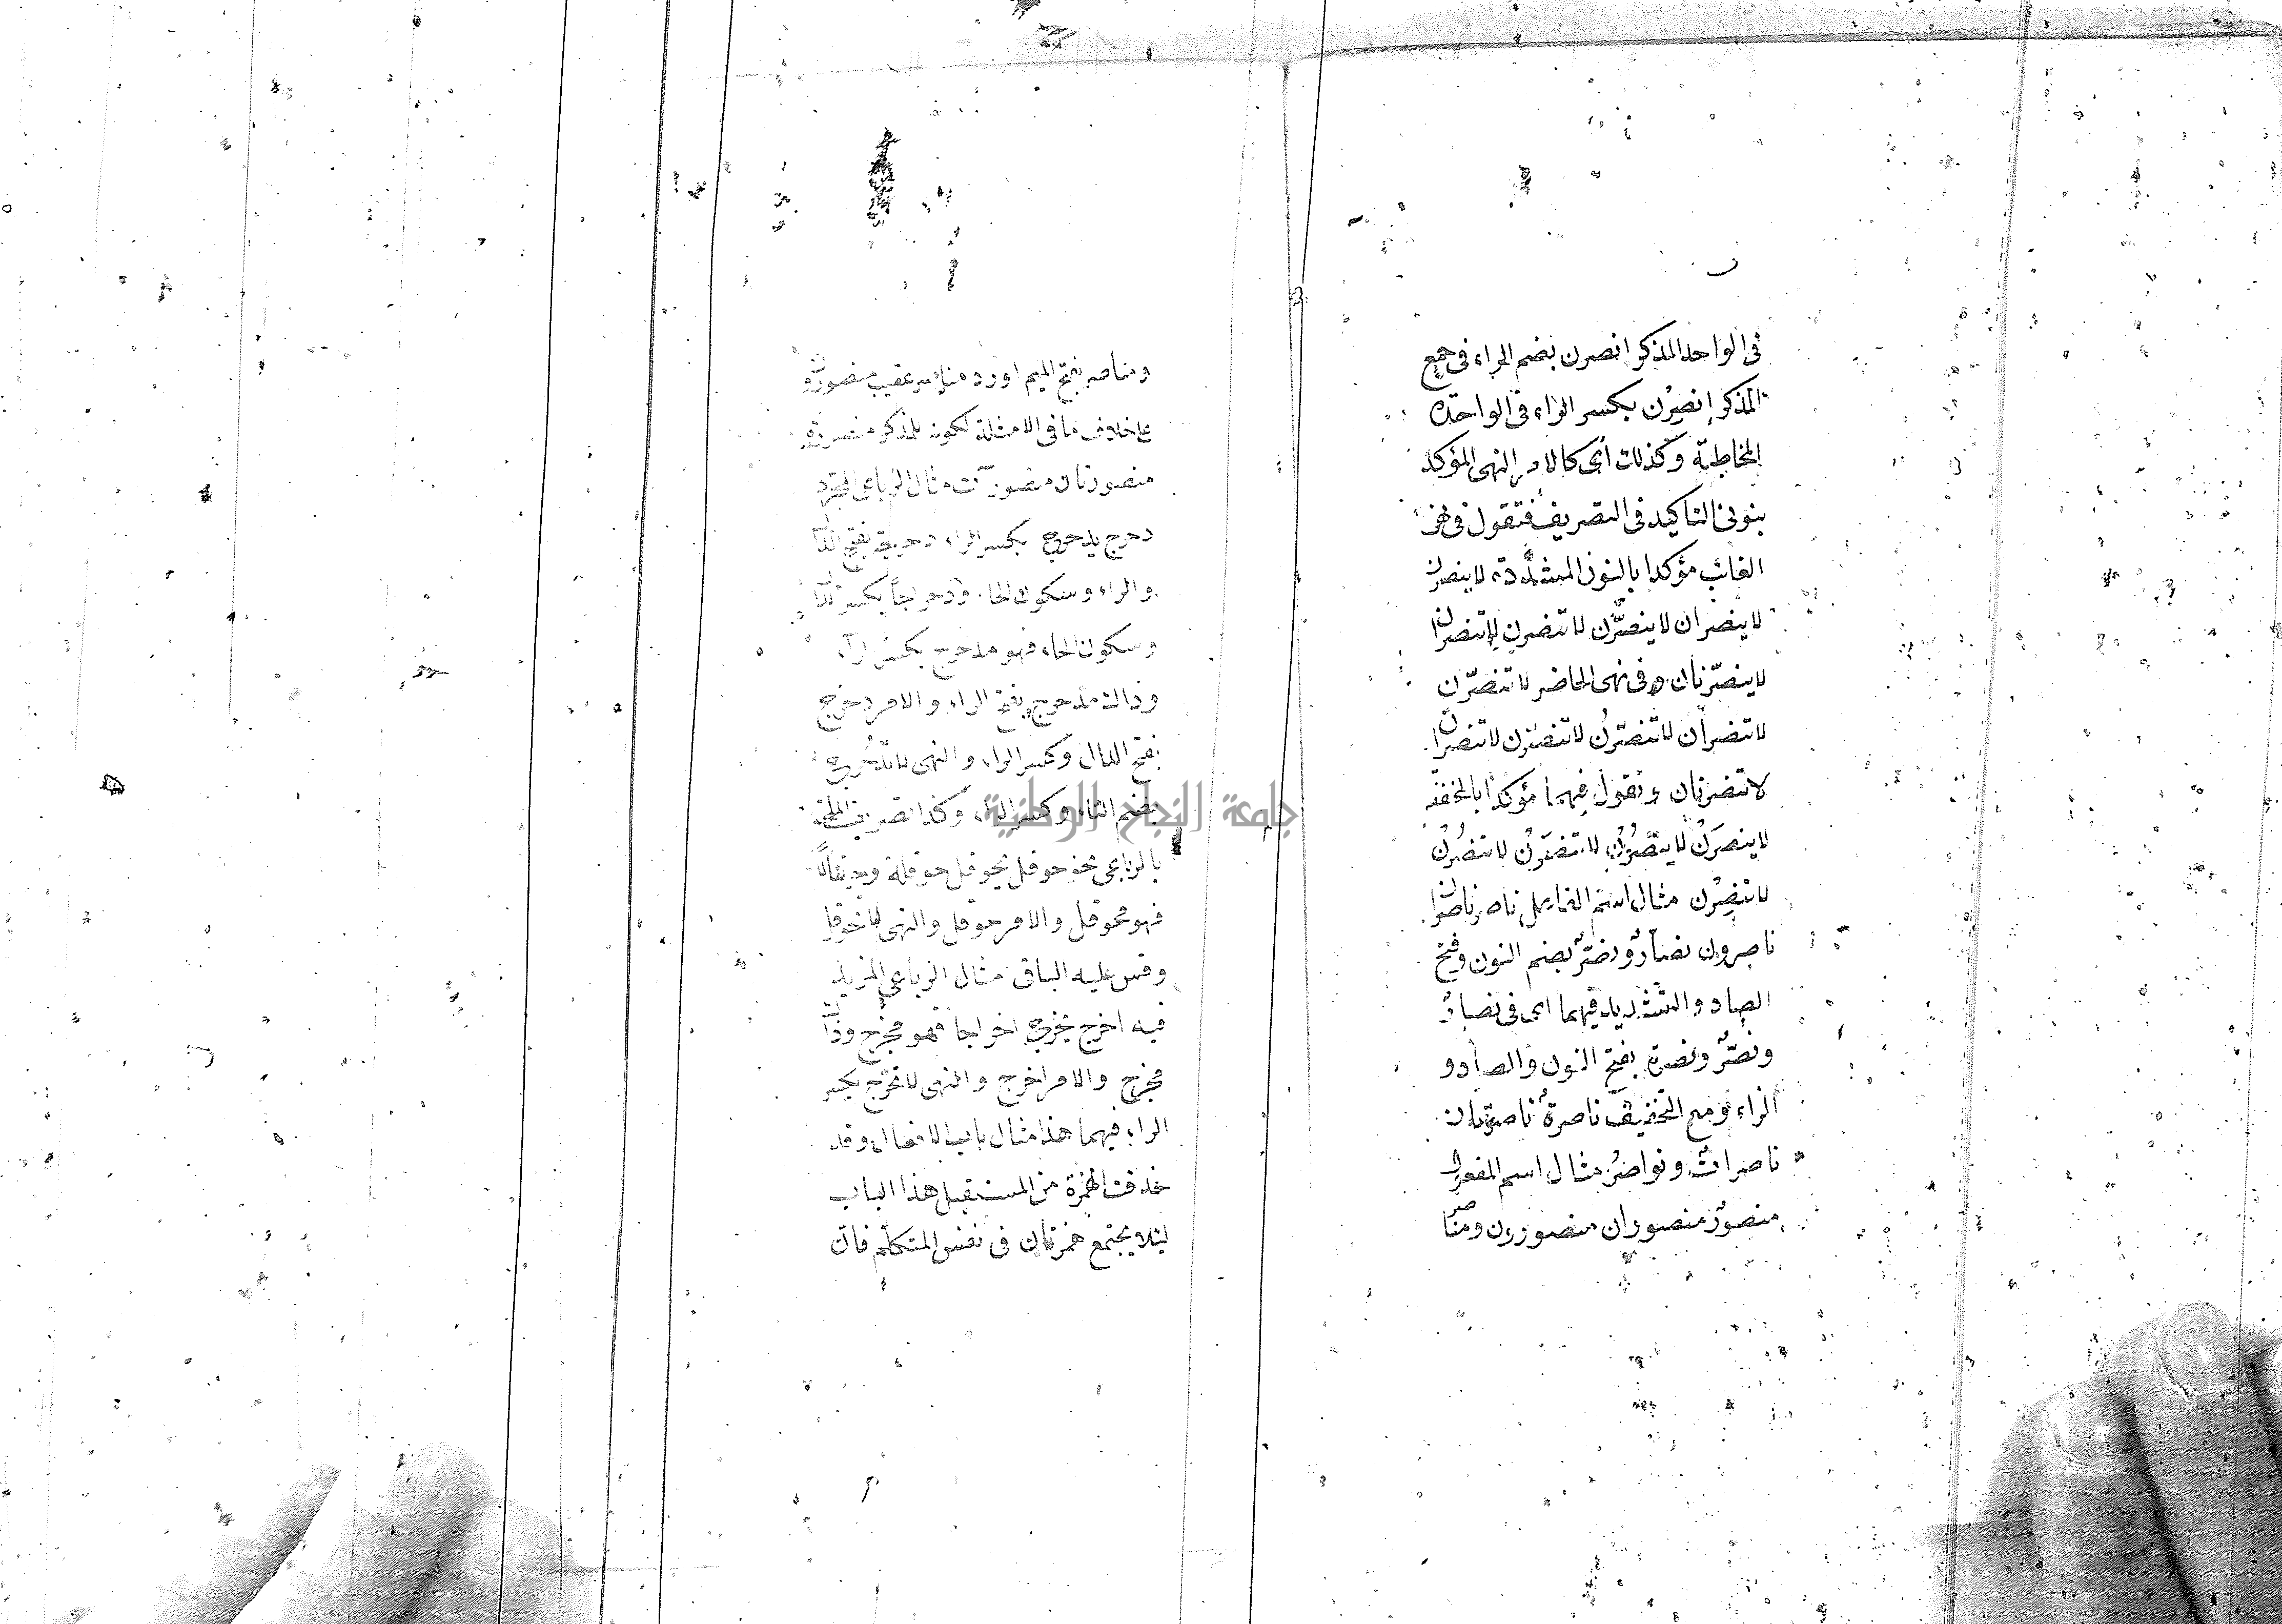 في الواحد المذكر انصرن بضم الراء في جمع
المذكر إنصرن بكسر الراء في الواحدة
المخاطبة وكذلك أى كالامر النهى المؤكد
بنونى التاكيد في التصريف فتقول في نهى
الغائب مؤكدا بالنون المشددة لا ينصرن
لا ينصران لا ينصرن لا تنصرن لا تنصران
لا ينصرنان وفى نهى الحاضر لا تنصرن
لا تنصران لا تنصرن لا تنصرن لا تنصران
لا تنصرنان وتقول فيهما مؤكدا بالمخففة
لا ينصرن لا ينصرن لا تنصرن لا تنصرن
لا تنصرن مثال اسم الفاعل ناصر ناصران
ناصرون نصار ونصر بضم النون وفتح
الصاد والتشديد فيهما اى فى نصار
ونصر ونصرة بفتح النون والصاد و
الراء ومع التخفيف ناصرة ناصرتان
ناصرات ونواصر مثال اسم المفعول
منصور منصوران منصورون ومناصر
ومناصر بفتح الميم اورد مناصر عقيب منصورون
على خلاف ما فى الامثلة لكونه للمذكر منصورة
منصورتان منصورات مثال الرباعى المجرد
دحرج يدحرج بكسر الراء دحرجة بفتح الدال
والراء وسكون الحاء ودحراجا بكسر الدال
وسكون الحاء فهو مدحرج بكسر الراء
وذاك مدحرج بفتح الراء والامر دحرج
بفتح الدال وكسر الراء والنهى لا تدحرج
بضم التاء وكسر الراء وكذا تصريف الملحق
بالرباعى نحو حوقل يحوقل حوقلة وحيقالا
فهو محوقل والامر حوقل والنهى لا تحوقل
وقس عليه الباقى مثال الرباعى المزيد
فيه اخرج يخرج اخراجا فهو مخرج وذاك
مخرج والامر اخرج والنهى لا تخرج بكسر
الراء فيهما هذا مثال باب الافعال وقد
حذفت الهمزة من المستقبل هذا الباب
لئلا يجتمع همزتان فى نفس المتكلم فان
جامعة النجاح الوطنية